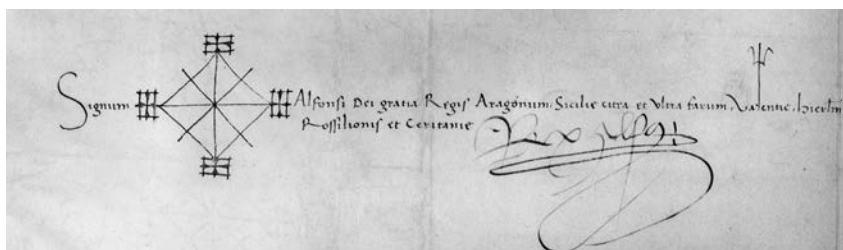 Signum Alfonsi Dei gratia Regis Aragonum. Sicilie citra et Ultra farum. Valentie. hierlm
Rossilionis et Ceritanie
Rex Alfonsus